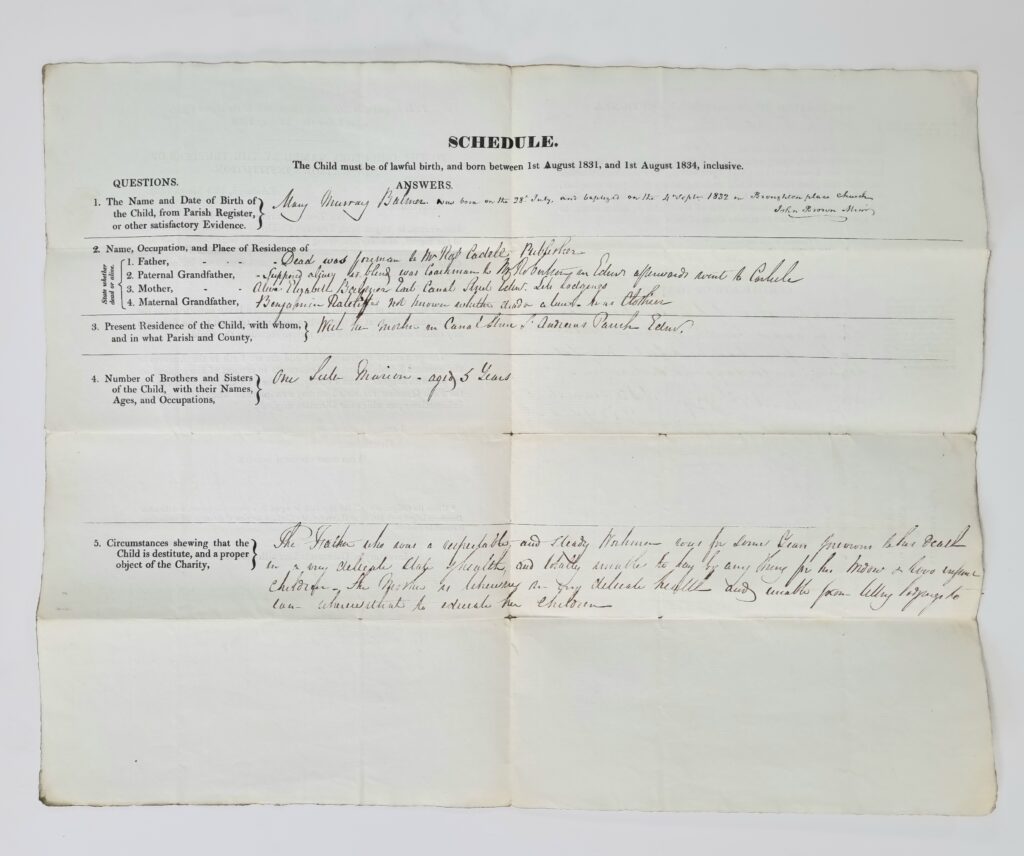 SCHEDULE.
The Child must be of lawful birth, and born between 1st August 1831, and 1st August 1834, inclusive.
QUESTIONS.
ANSWERS.
1. The Name and Date of Birth of the Child, from Parish Register, or other satisfactory Evidence.
Mary Murray Balmer was born on the 28 July, and baptized on the 4 Septr 1832 in Broughton place church
John Brown Minr
2. Name, Occupation, and Place of Residence of
State whether dead or alive.
1. Father, - Dead was foreman to Mr Robt Cadell Publisher
2. Paternal Grandfather, - Supposed alive or blind was Coachman to Mr in Edinr afterwards went to Carlisle
3. Mother, - Alive Elizabeth East Canal Street Edinr. Lets Lodgings
4. Maternal Grandfather, Benjamin Ratcliffe not known whether dead or alive. was Clothier
3. Present Residence of the Child, with whom, and in what Parish and County,
With her Mother in Canal Street St Andrews Parish Edinr.
4. Number of Brothers and Sisters of the Child, with their Names, Ages, and Occupations,
One Sister Marion - aged 5 Years
5. Circumstances shewing that the Child is destitute, and a proper object of the Charity,
The Father who was a respectable and steady Workman was for some Years previous to his death
in a very delicate state of health, and totally unable to lay by any thing for his Widow & two infant
children. The Mother is likewise in very delicate health and unable from letting lodgings to
earn wherewithal to educate her children